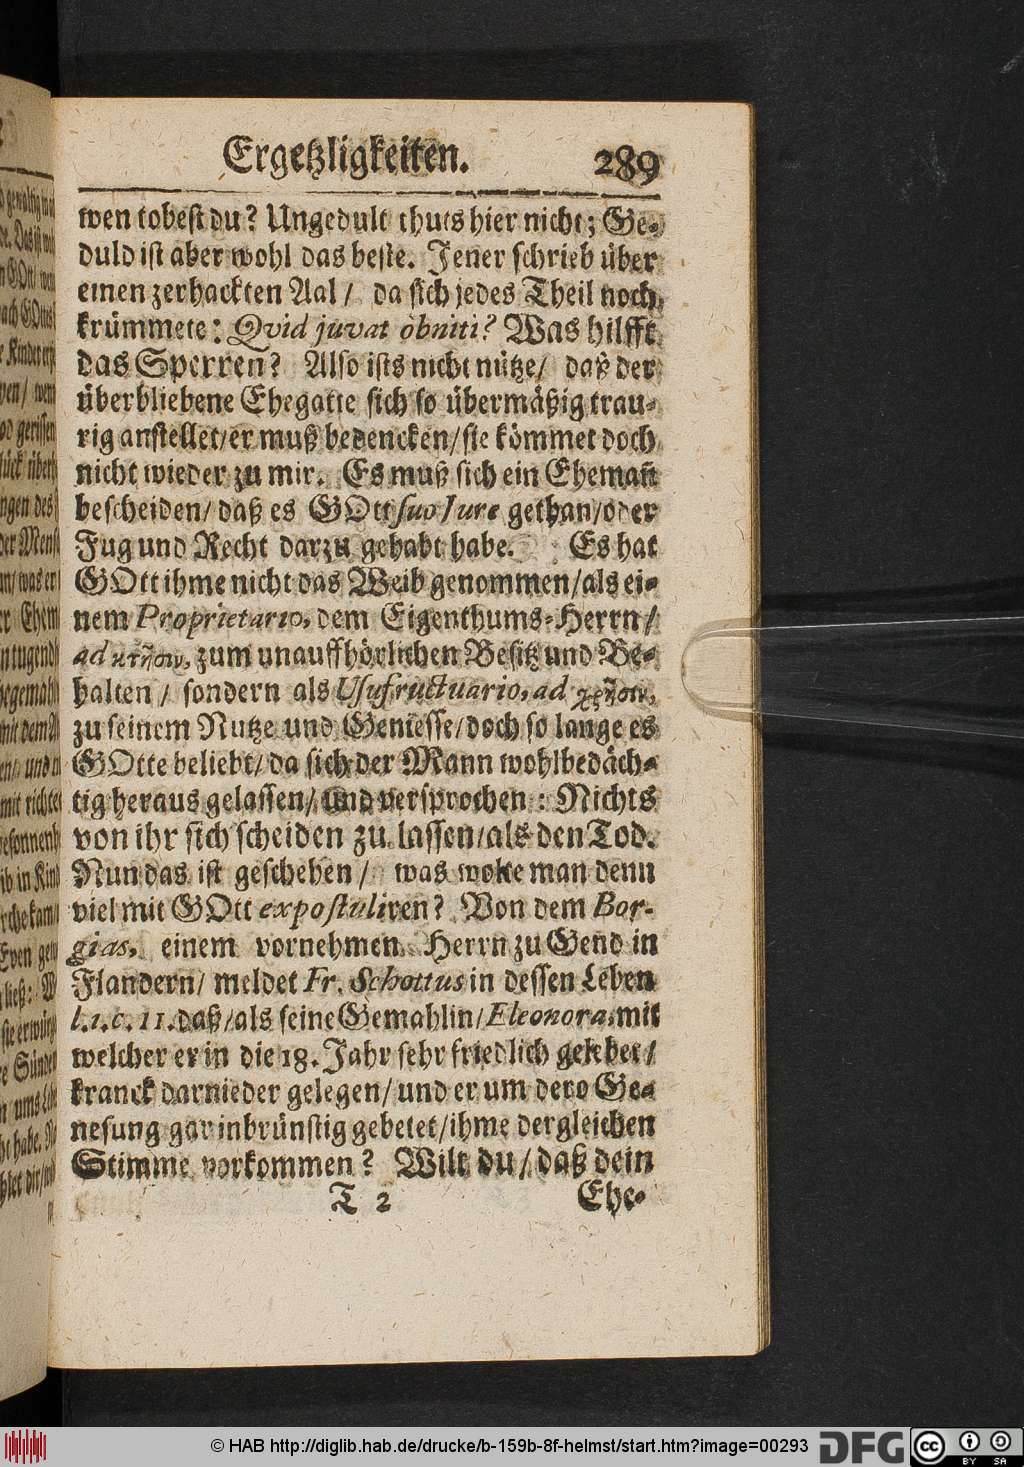 Ergetzligkeiten. 289
wen tobest du? Ungedult thuts hier nicht; Ge-
duld ist aber wohl das beste. Jener schrieb über
einen zerhackten Aal / da sich jedes Theil noch
krümmete: Qvid juvat obniti? Was hilfft
das Sperren? Also ists nicht nütze/ daß der
überbliebene Ehegatte sich so übermäßig trau-
rig anstellet/er muß bedencken/sie kömmet doch
nicht wieder zu mir. Es muß sich ein Ehemañ
bescheiden/ daß es GOtt suo Jure gethan/oder
Fug und Recht darzu gehabt habe. Es hat
GOtt ihme nicht das Weib genommen/als ei-
nem Proprietario, dem Eigenthums-Herrn/
ad κτῆσιν, zum unauffhörlichen Besitz und Be-
halten / sondern als Usufructuario, ad χρῆσιν,
zu seinem Nutze und Geniesse/doch so lange es
GOtte beliebt/da sich der Mann wohlbedäch-
tig heraus gelassen/ und versprochen: Nichts
von ihr sich scheiden zu lassen/als den Tod.
Nun das ist geschehen / was wolte man denn
viel mit GOtt expostuliren? Von dem Bor-
gias, einem vornehmen Herrn zu Gend in
Flandern/ meldet Fr. Schottus in dessen Leben
l. 1. c. 11. daß/als seine Gemahlin/Eleonora, mit
welcher er in die 18. Jahr sehr friedlich gelebet /
kranck darnieder gelegen/ und er um dero Ge-
nesung gar inbrünstig gebetet/ihme dergleichen
Stimme vorkommen? Wilt du / daß dein
T 2 Ehe-
© HAB http://diglib.hab.de/drucke/b-159b-8f-helmst/start.htm?image=00293 DFG cc BY SA